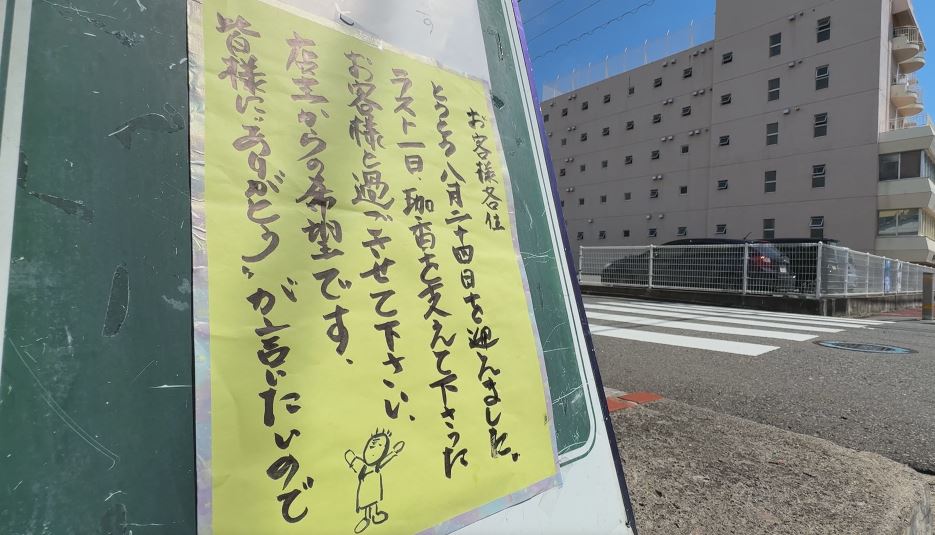 お客様各位
とうとう八月二十四日を迎えました。
ラスト一日 珈香を支えて下さった
お客様と過ごさせて下さい、
店主からの希望です、
皆様に"ありがとう"が言いたいので